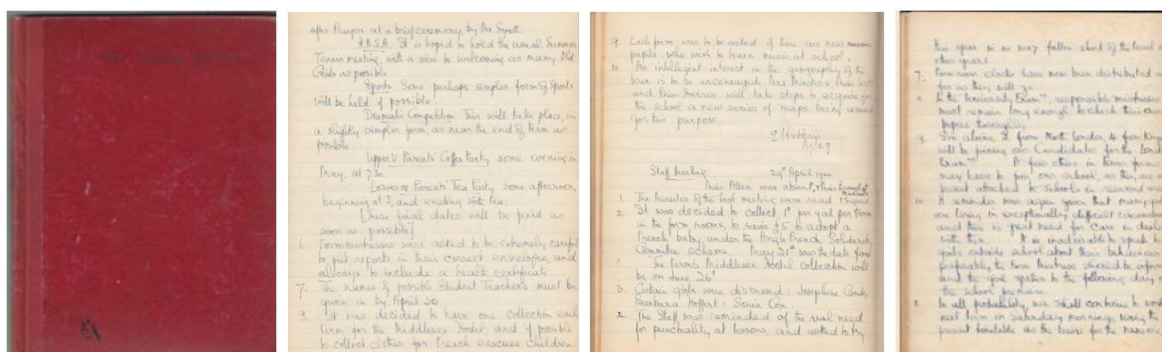 after Prayers at a brief ceremony by Mrs
K.B.S.A. It is hoped to hold the usual Summer
Tennis meeting, with a view to welcoming as many Old
Girls as possible
Sports Some perhaps simpler form of Sports
will be held if possible.
Dramatic Competition This will take place, in
a slightly simpler form, as near the end of term as
possible.
Upper V Parents' Coffee Party some evening in
May, at 7.30.
Lower Parents' Tea Party some afternoon,
beginning at 3, and ending with tea.
(These final dates will be fixed as
soon as possible)
6. Form mistresses were asked to be extremely careful
to put reports in their correct envelopes, and
always to include a health certificate
7. The names of possible Student Teachers must be
given in by April 20.
It was decided to have one collection each
term for the Middlesex Hostel, and if possible
to collect clothes for French evacuee children.
9. Each form was to be asked if there are new
pupils who wish to learn music at school.
10. An intelligent interest in the geography of the
war is to be encouraged.
and Miss Harris will take steps to acquire for
the school a new series of maps being issued
for this purpose.
Staff Meeting 29th April
Miss Allen was absent,
1. The Minutes of the last meeting were read & signed
2. It was decided to collect 1d per girl per term
in the form rooms, to raise £5 to adopt a
French baby, under the Anglo French Solidarity
Committee scheme. May 21st was the date fixed
The Form's Middlesex Hostel collection will
be on June 26th
3. Certain girls were discussed: Josephine
Barbara: Sonia Cox.
2. The Staff was reminded of the real need
for punctuality at lessons, and asked to try
this year in no way fallen short of the level of
other years.
7. clocks have now been distributed as
far as they will go.
In the University Exam, responsible mistresses
must remain long enough to check their own
papers thoroughly.
from North London, 4 from
will be joining our Candidates for the
Exam. A few others in
may have to join our school, as they are at
present attached to schools in
10. A reminder was again given that many girls
are living in exceptionally difficult circumstances
and there is great need for care in dealing
with them. It is inadvisable to speak to
girls outside school about their behaviour
preferably, the form mistress should be informed
and the girl spoken to the following day on
the school premises.
In all probability, we shall continue to work
next term on Saturday mornings using the
present timetable as the basis for the new one.